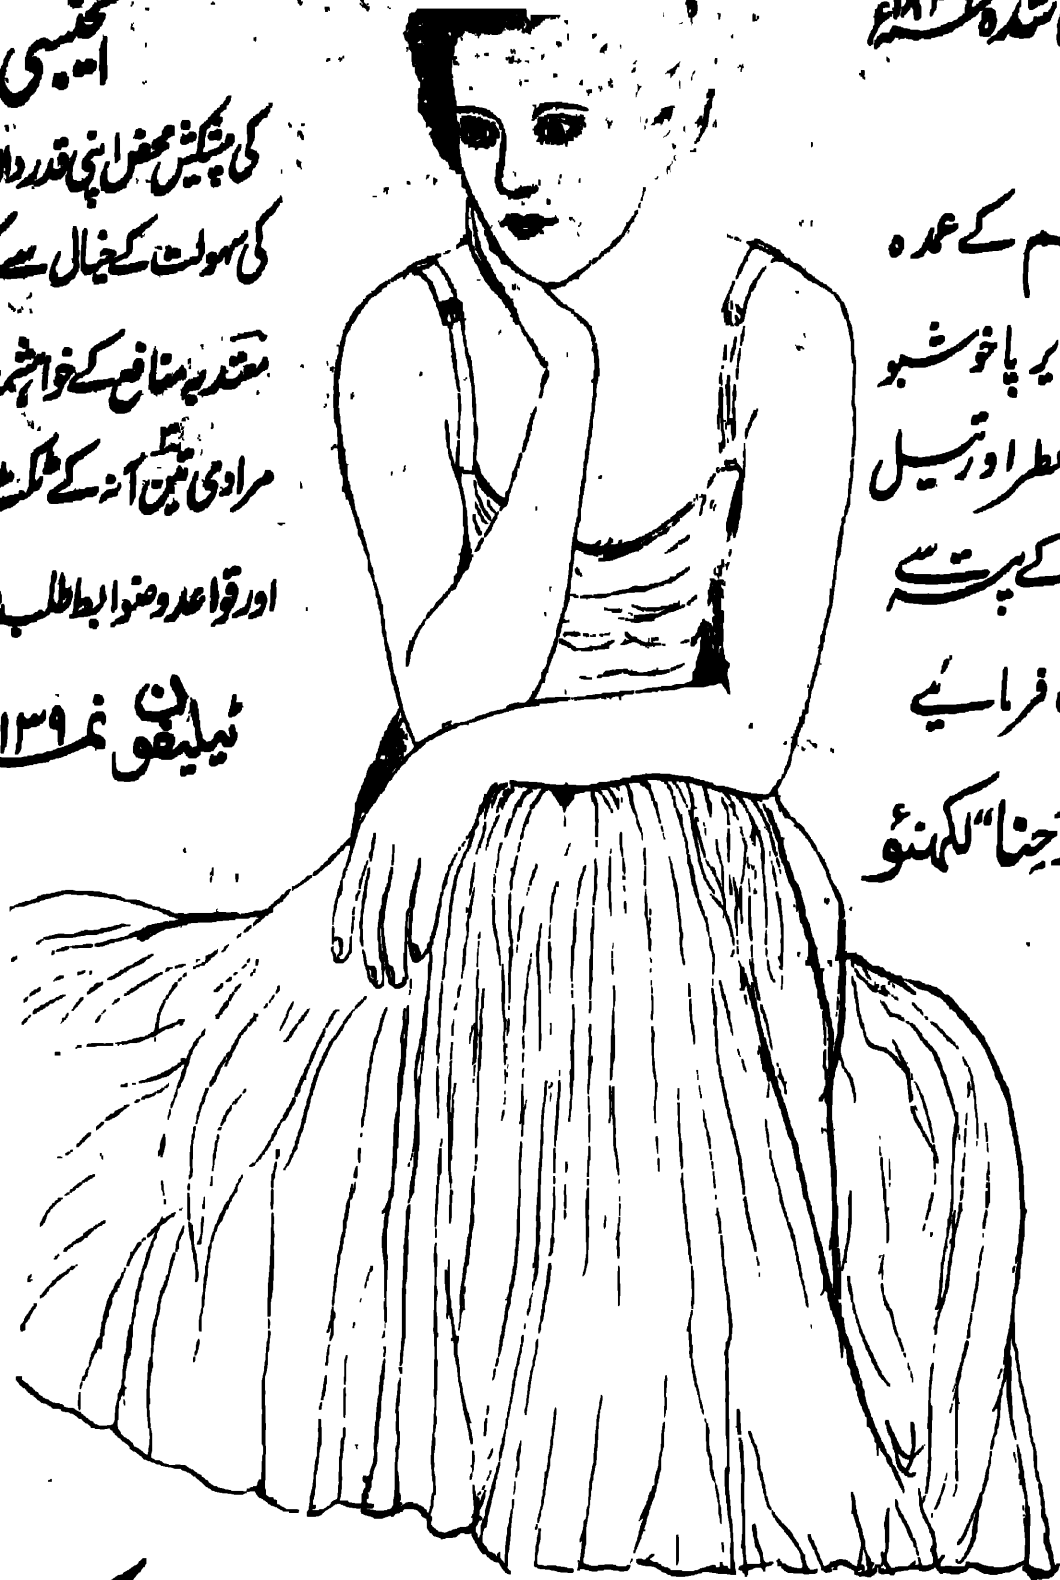 شدہ ۱۸۳ء
کے عمدہ
پا خوشبو
اور تیل
کے پتہ سے
فرمائیے
حنا“ لکھنؤ
ایجنسی
کی پیشکش محض اپنی قدر
کی سہولت کے خیال سے
معتدبہ منافع کے
مرادی تین آنہ کے ٹکٹ
اور قواعد و ضوابط طلب
ٹیلیفون نمبر ۱۳۹